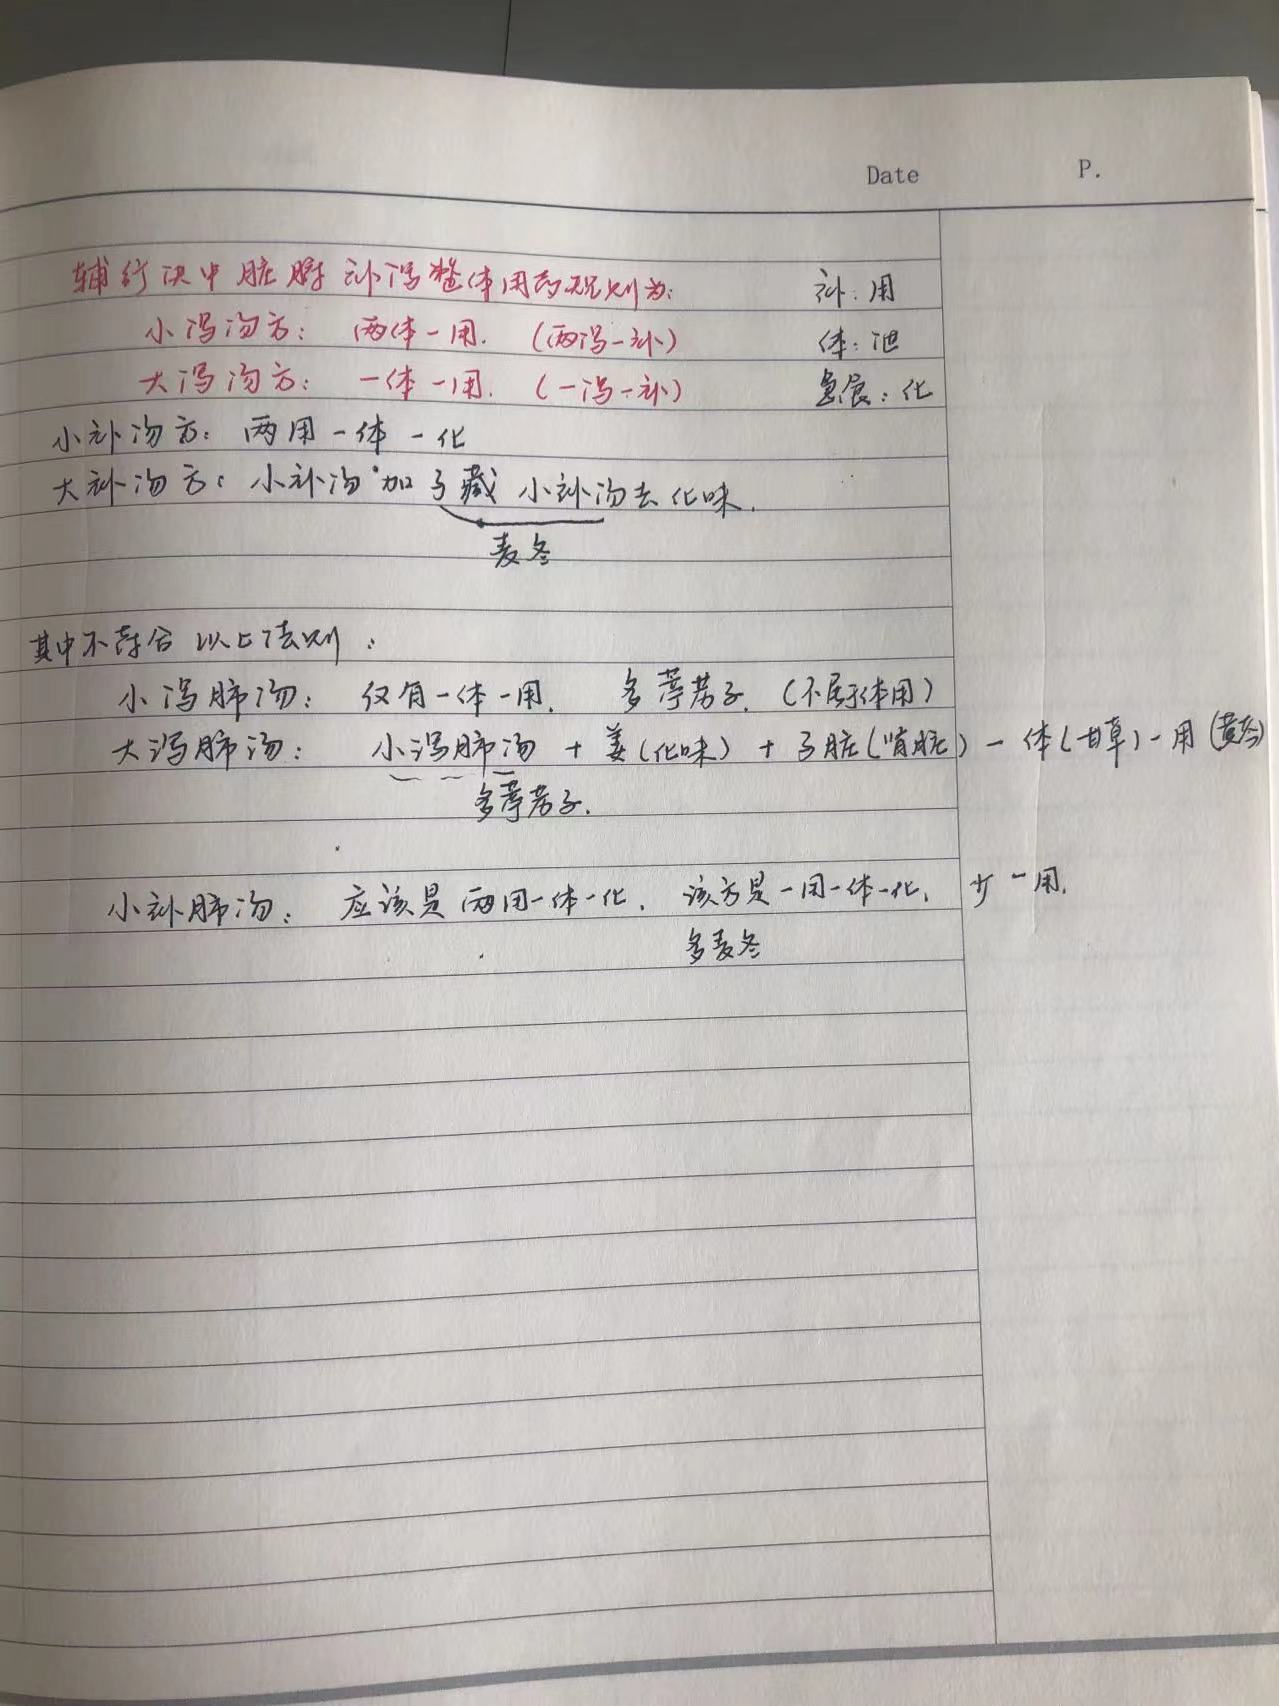 Date P.
辅行决中脏腑补泻整体用药规则为: 补:用
小泻汤方: 两体一用. (两泻一补) 体:泄
大泻汤方: 一体一用. (一泻一补) 急食:化
小补汤方: 两用一体一化
大补汤方: 小补汤加子藏小补汤去化味.
麦冬
其中不符合以上法则:
小泻肺汤: 仅有一体一用. 多葶苈子. (不属于体用)
大泻肺汤: 小泻肺汤+姜(化味)+子脏(肾脏)一体(甘草)一用(黄芩)
多葶苈子.
小补肺汤: 应该是两用一体一化. 该方是一用一体一化, 少一用.
多麦冬